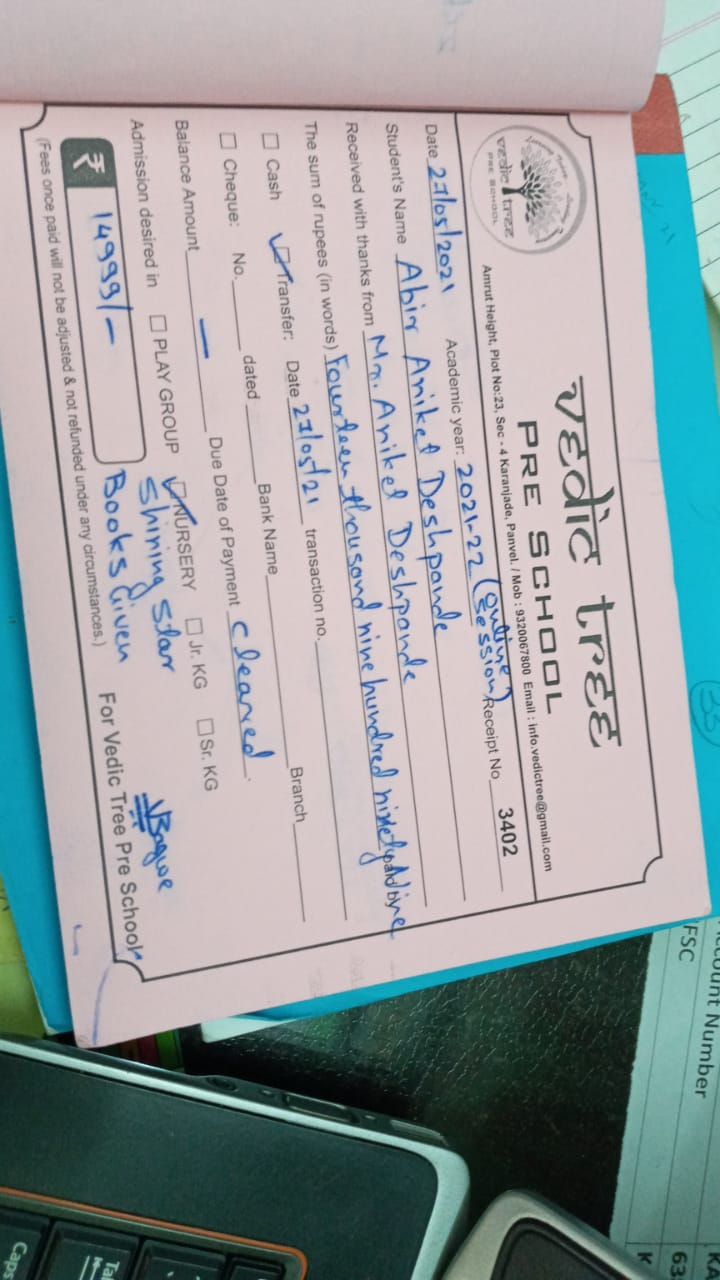 vedic tree
PRE SCHOOL
vedic tree
PRE SCHOOL
Amrut Height, Plot No:23, Sec - 4 Karanjade, Panvel. / Mob : 9320067800 Email : info.vedictree@gmail.com
Date 27/05/2021 Academic year: 2021-22 (Online Session) Receipt No. 3402
Student's Name Abir Aniket Deshpande
Received with thanks from Mr. Aniket Deshpande
The sum of rupees (in words) Fourteen thousand nine hundred ninety Nine paid by
Cash Transfer: Date 27/05/21 transaction no.
Cheque: No. dated Bank Name Branch
Balance Amount — Due Date of Payment Cleared.
Admission desired in PLAY GROUP NURSERY Jr. KG Sr. KG
Shining Star
₹ 14999/- Books Given For Vedic Tree Pre School
(Fees once paid will not be adjusted & not refunded under any circumstances.)
33
Account Number
IFSC
63
K
Tab
Caps